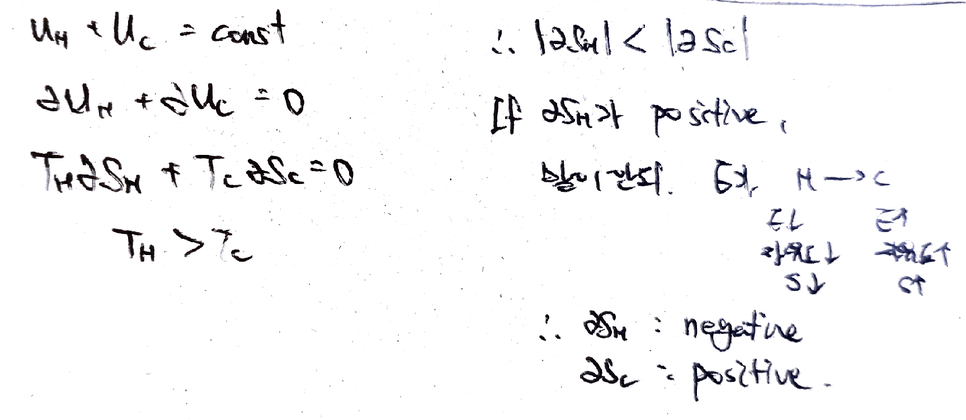 U_H + U_C = const
∂U_H + ∂U_C = 0
T_H∂S_H + T_C∂S_C = 0
T_H > T_C
∴ |∂S_H| < |∂S_C|
If ∂S_H가 positive,
말이 안돼. H → C
E↓ E↑
자유도↓ 자유도↑
S↓ S↑
∴ ∂S_H : negative
∂S_C : positive.